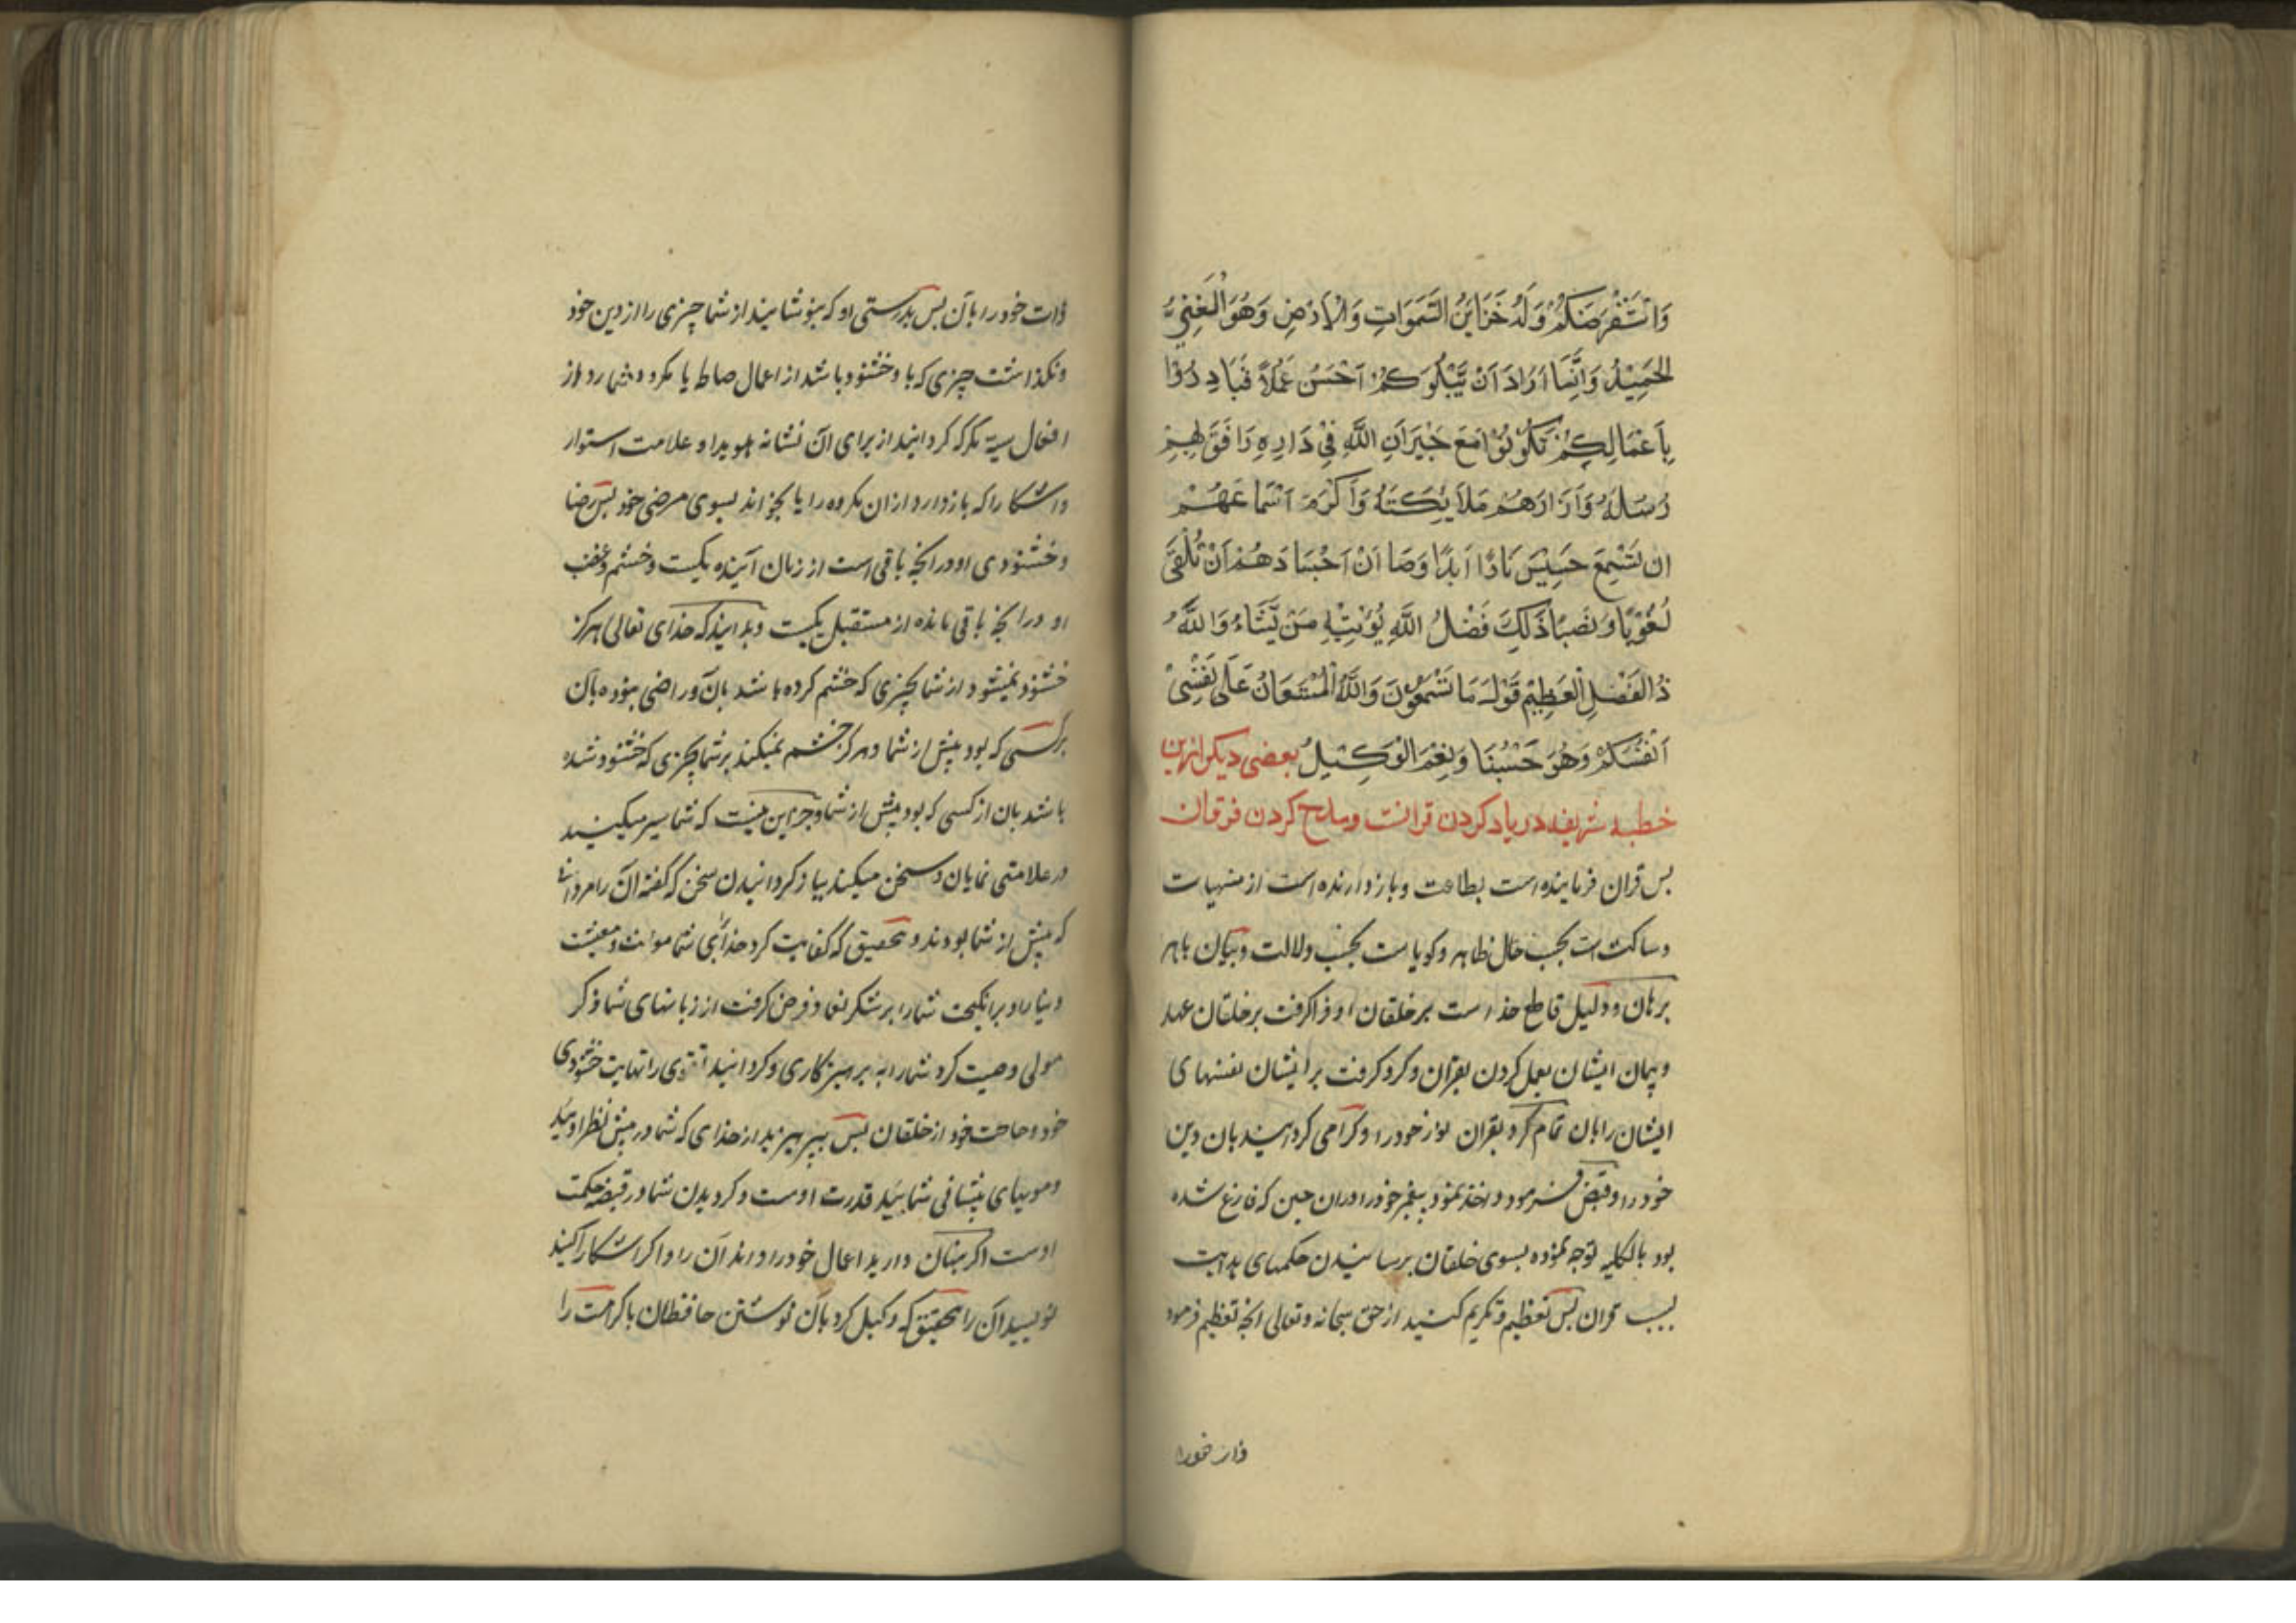 وَاسْتَقْرَضَكُمْ وَلَهُ خَزَايِنُ السَّمَوَاتِ وَالْاَرْضِ وَهُوَ الْغَنِيُّ
الْحَمِيْدُ وَاِنَّمَا اَرَادَ اَنْ يَّبْلُوَكُمْ اَحْسَنُ عَمَلًا فَبَادِرُوْا
بِاَعْمَالِكُمْ تَكُوْنُوْا مَعَ جِيْرَانِ اللّٰهِ فِيْ دَارِهِ رَافَقَ بِهِمْ
رُسُلَهُ وَاَزَارَهُمْ مَلَايِكَتَهُ وَاَكْرَمَ اَسْمَاعَهُمْ
ان تَسْمَعَ حَسِيْسَ نَارٍ اَبَدًا وَصَانَ اَجْسَادَهُمْ اَنْ تَلْقَى
لُغُوْبًا وَنَصَبًا ذَلِكَ فَضْلُ اللّٰهِ يُؤْتِيْهِ مَنْ يَّشَاءُ وَاللّٰهُ
ذُو الْفَضْلِ الْعَظِيْمِ قَوْلَ مَا تَسْمَعُوْنَ وَاللّٰهُ الْمُسْتَعَانُ عَلَى نَفْسِيْ
اَنْفُسِكُمْ وَهُوَ حَسْبُنَا وَنِعْمَ الْوَكِيْلُ بعضی دیکر ازین
خطبه شریفه در یاد کردن قرانت ومدح کردن فرقان
بس قران فرماینده است بطاعت وبازدارنده است از منهیات
وساکت است بحسب حال ظاهر وکویاست بحسب دلالت وبیان باهر
برهان ودلیل قاطع خداست بر خلقان او فراکرفت بر خلقان عهد
وپیمان ایشان بعمل کردن بقران وکرو کرفت بر ایشان نفسهای
ایشان را بان تمام کرد بقران نور خود را وکرامی کردانید بان دین
خود را وقبض فرمود واخذ نمود پیغمبر خود را دران حین که فارغ شده
بود بالکلیه توجه نموده بسوی خلقان برسانیدن حکمهای هدایت
بسبب قران بس تعظیم وتکریم کنید از حق سبحانه وتعالی انچه تعظیم فرمود
ذات خود را
ذات خود را بآن بس بدرستی او که نپوشانید از شما چیزی را از دین خود
ونکذاشت چیزی که باو خشنود باشد از اعمال یا مکروه شمارد از
افعال سیه مکر که کردانید از برای آن نشانه هویدا وعلامت استوار
واشکارا که بازدارد ازان مکروه را یا بخواند بسوی مرضی خود بس رضا
وخشنودی او در انچه باقی است از زمان آینده یکیست وخشم وغضب
او در انچه باقی مانده از مستقبل یکیست وبدانید که خدای تعالی هرکز
خشنود نمیشود از شما بچیزی که خشم کرده باشد بآن وراضی نبوده بآن
بر کسی که بود پیش از شما وهرکز خشم نمیکند بر شما بچیزی که خشنود شده
باشد بان از کسی که بود پیش از شما وجز این نیست که شما سیر میکنید
در علامتی نمایان وسخن میکنید بباز کردانیدن سخن که گفته آن را مردانی
که پیش از شما بودند وتحقیق که کفایت کرد خدا شما معیشت
دنیا را وبرانکیخت شما را بر شکر نعما وفرض کرفت از زبانهای شما ذکر
مولی وصیت کرد شما را به پرهیزکاری وکردانید تقوی را نهایت خشنودی
خود وحاجت خود از خلقان بس بپرهیزید از خدای که شما در پیش نظر اوئید
ومویهای پیشانی شما بید قدرت اوست وکردیدن شما در قبضه حکمت
اوست اکر پنهان دارید اعمال خود را داند آن را واکر اشکارا کنید
نویسید آن را بتحقیق که وکیل کرد بآن نوشتن حافظان باکرامت را